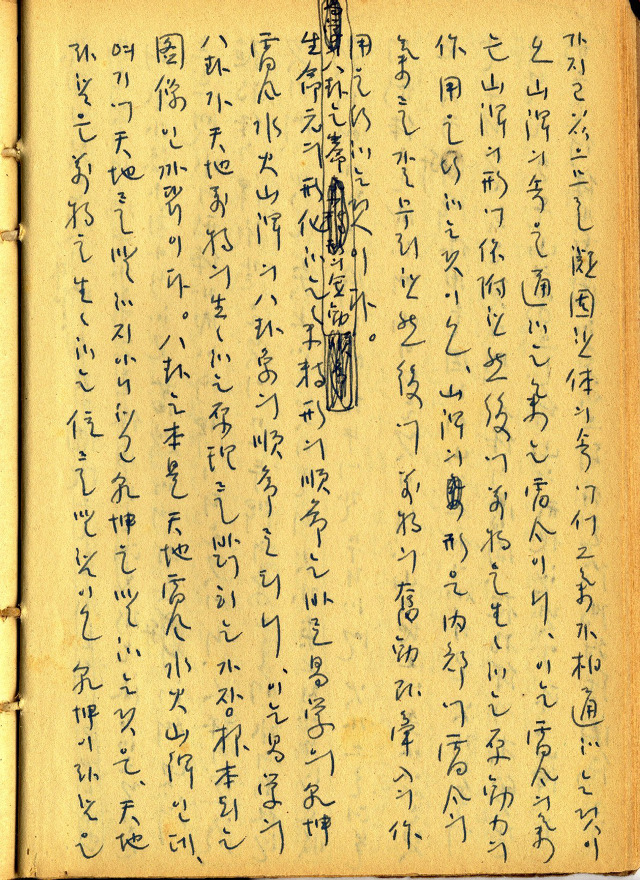 가지고 있으므로 凝固한 体의 속에서 그 氣가 相通하는 것이
오 山澤의 속을 通하는 氣는 雷風이니, 이는 雷風의 氣
는 山澤의 形에 依附한 然後에 萬物을 生生하는 原動力의
作用을 行하는 것이오, 山澤의 形은 內部에 雷風의
氣를 갈무리한 然後에 萬物의 奮動과 牽入의 作
用을 行하는 것이다。
生命元의 形化하는 形의 順序는 바로 易学의 乾坤
雷風水火山澤의 八卦象의 順序로 되니, 이는 易学의
八卦가 天地萬物의 生生하는 原理를 밝히는 가장 根本되는
图像인 까닭이다。八卦는 本是 天地雷風水火山澤인데,
여기에 天地를 말하지 아니하고 乾坤을 말하는 것은, 天地
라 함은 萬物을 生生하는 位를 말함이오 乾坤이라 함은